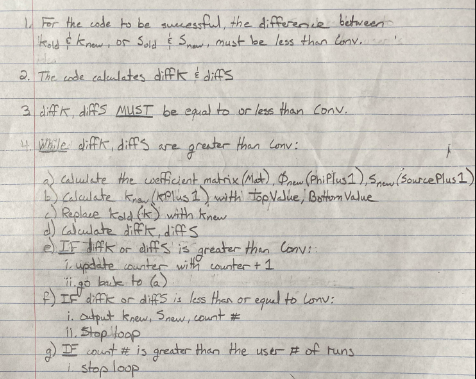 1. For the code to be successful, the difference between
kold & knew, or Sold & Snew, must be less than Conv.
2. The code calculates diffK & diffS
3. diffK, diffS MUST be equal to or less than Conv.
4. While diffK, diffS are greater than Conv:
a) Calculate the coefficient matrix (Mat), Φnew (PhiPlus1), Snew (SourcePlus1)
b) Calculate Knew (KPlus1) with TopValue, BottomValue
c) Replace Kold (K) with Knew
d) Calculate diffK, diffS
e) IF diffK or diffS is greater than Conv:
i. update counter with counter + 1
ii. go back to (a)
f) IF diffK or diffS is less than or equal to Conv:
i. output Knew, Snew, count #
ii. Stop loop
g) IF count # is greater than the user # of runs
i. stop loop